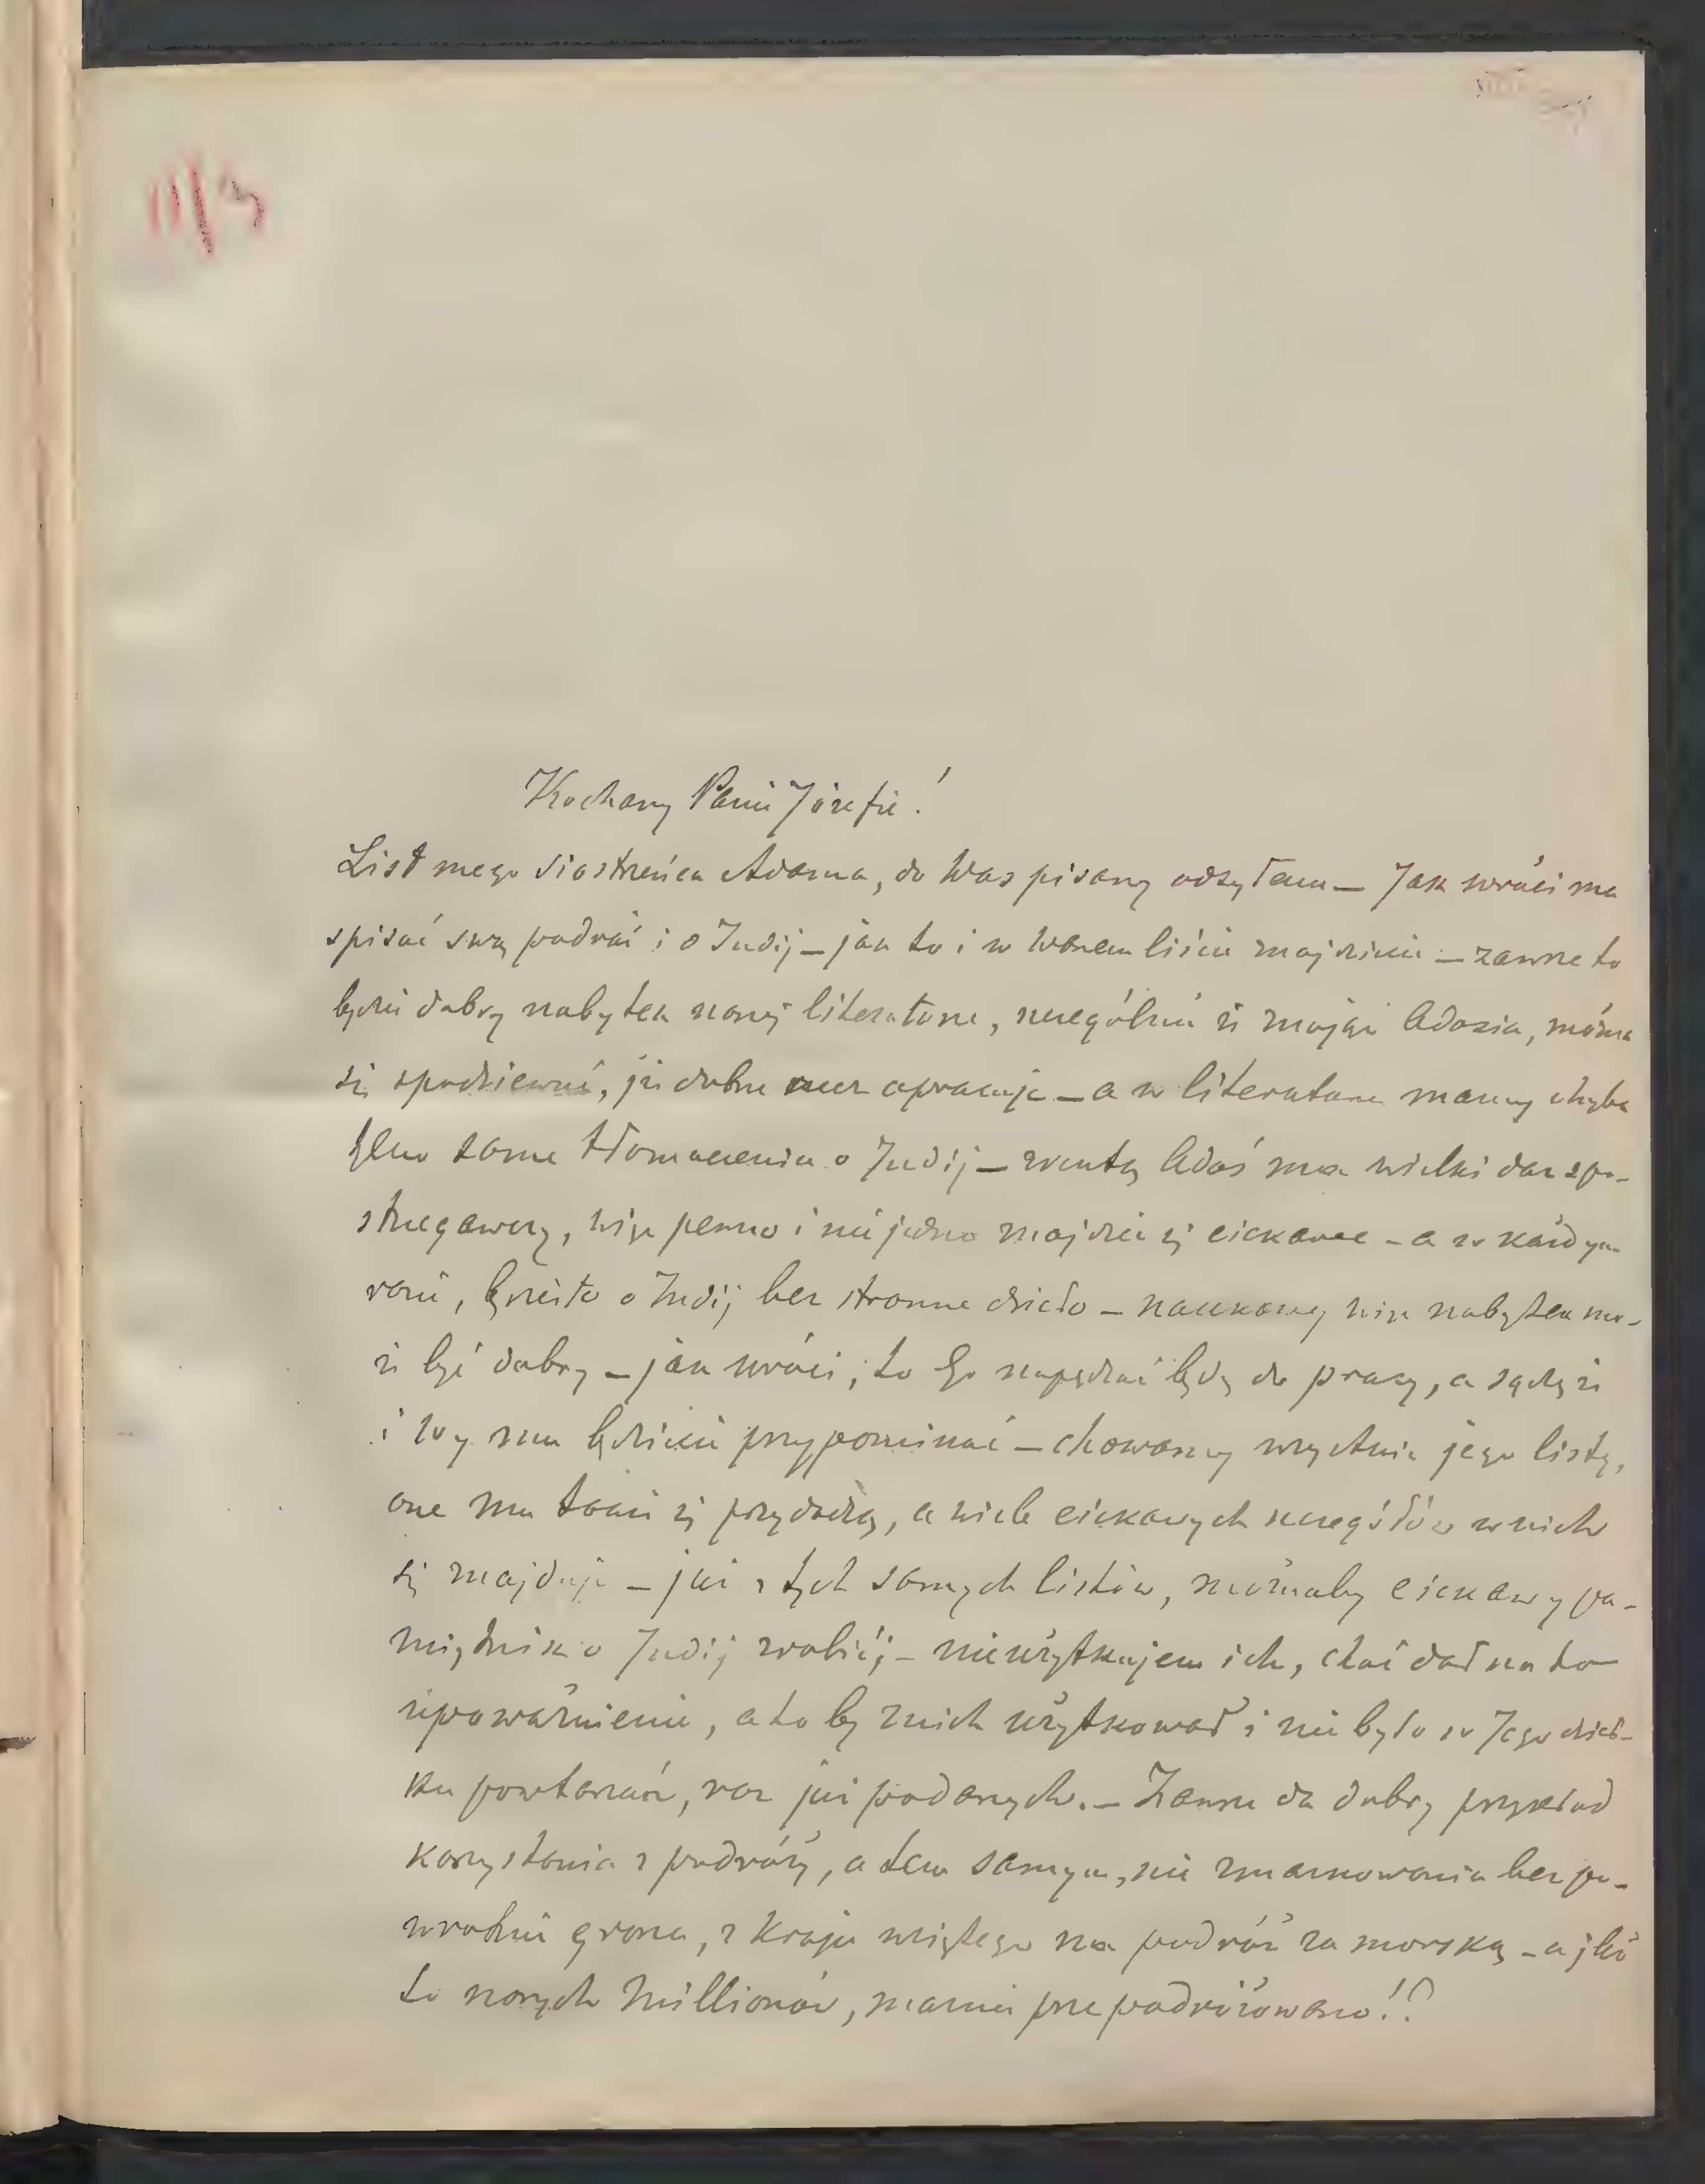 11/3
Kochany Panie Józefie!
List mego siostrzeńca Adama, do Was pisany odsyłam — Jak wróci ma
spisać swą podróż i o Indij — jak to i w Waszem liście znajdziecie — zawsze to
będzie dobry nabytek naszej literaturze, szczególnie iż znając Adasia, można
się spodziewać, że dobrze rzecz opracuje — a w literaturze mamy chyba
tylko same tłomaczenia o Indij — zresztą Adaś ma wielki dar spo-
strzegawczy, więc pewno i nie jedno znajdzie się ciekawe — a w każdym
razie, będzie to o Indij bez stronne dzieło — naukowy więc nabytek mo-
że być dobry — jak wróci, to Go napędzać będę do pracy, a sądzę iż
i Wy mu będziecie przypominać — chowamy wszystkie jego listy,
one mu także się przydadzą, a wiele ciekawych szczegółów w nich
się znajduje — już z tych samych listów, możnaby ciekawy pa-
miętnik o Indij zrobić; — nieużytkujem ich, choć dał na to
upoważnienie, a to by z nich użytkował i nie było w Jego dzieł-
ku powtarzań, raz już podanych. — Zawsze da dobry przykład
korzystania z podróży, a tem samym, nie zmarnowania bez po-
wrotnie grosza, z kraju wziętego na podróż za morską — a ileż
to naszych Millionów, marnie prze podróżowano!?